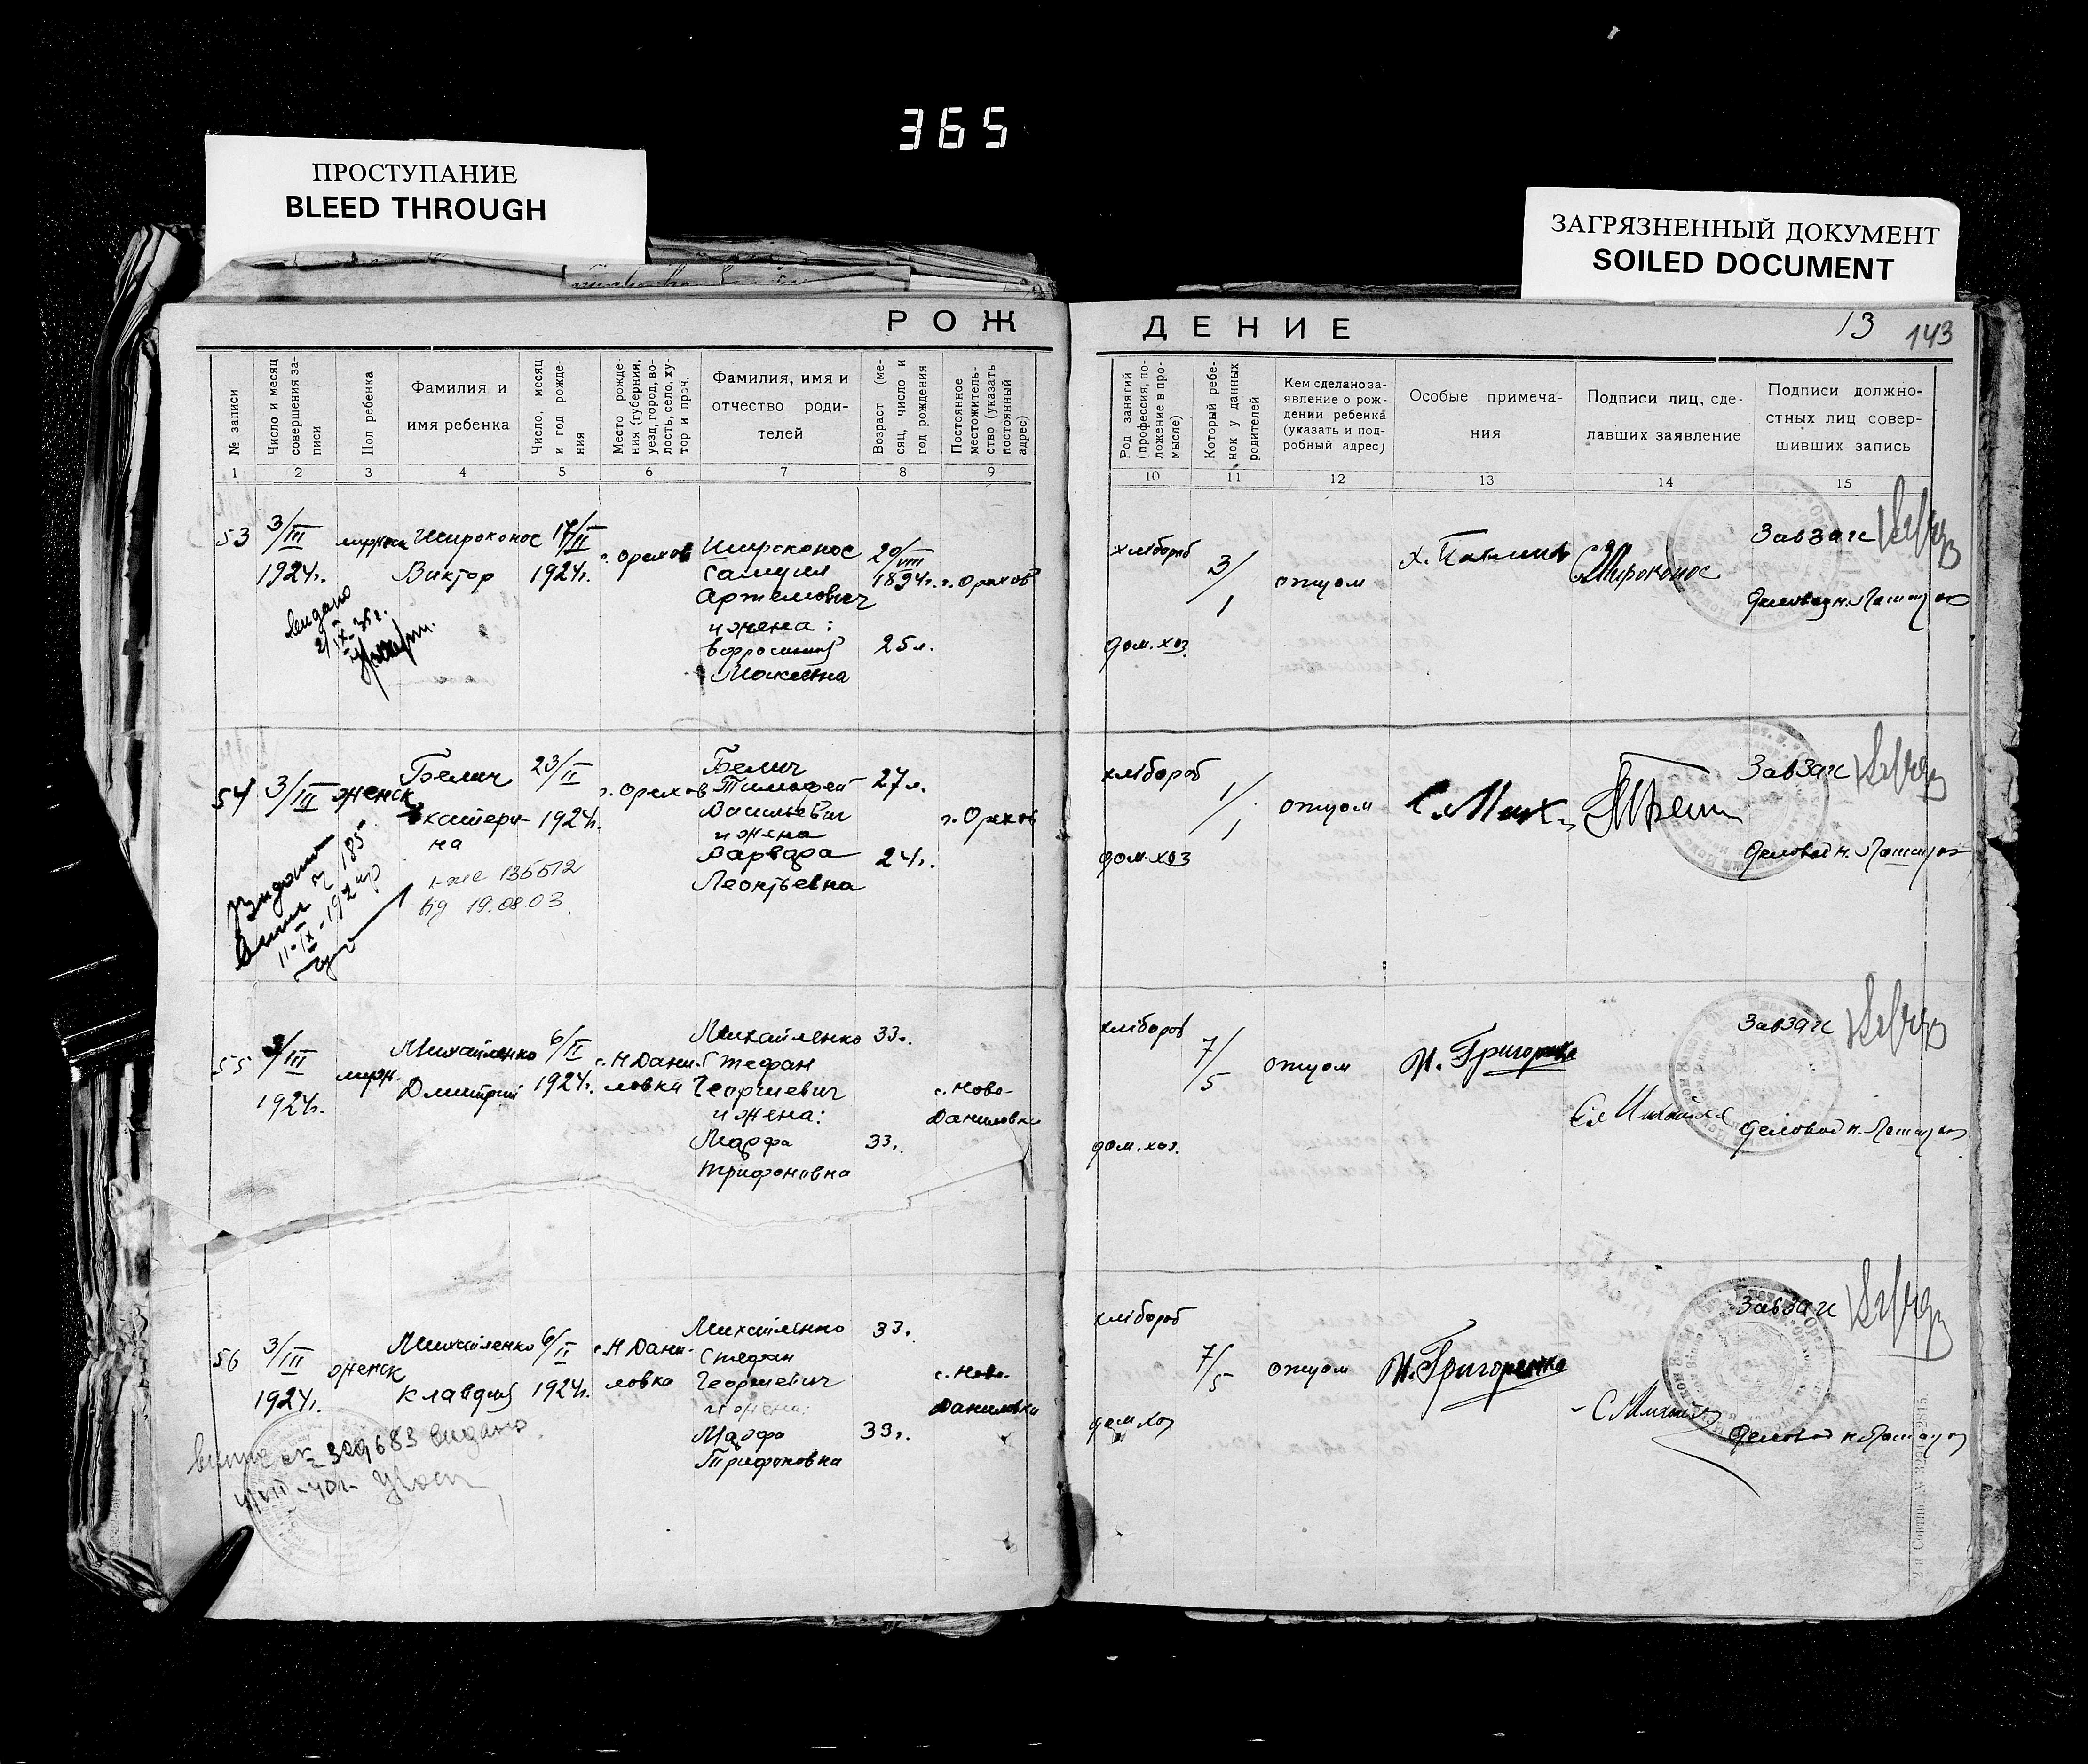 365
ПРОСТУПАНИЕ
BLEED THROUGH
ЗАГРЯЗНЕННЫЙ ДОКУМЕНТ
SOILED DOCUMENT
РОЖ
ДЕНИЕ
13 143
№ записи
Число и месяц совершения за-
писи
Пол ребенка
Фамилия и
имя ребенка
Число, месяц
и год рожде-
ния
Место рожде-
ния (губерния,
уезд, город, во-
лость, село, ху-
тор и проч.
Фамилия, имя и
отчество роди-
телей
Возраст (ме-
сяц, число и
год рождения
Постоянное
местожитель-
ство (указать
постоянный
адрес)
Род занятий
(профессия, по-
ложение в про-
мысле)
Который ребе-
нок у данных
родителей
Кем сделано за-
явление о рож-
дении ребенка
(указать и под-
робный адрес)
Особые примеча-
ния
Подписи лиц, сде-
лавших заявление
Подписи должно-
стных лиц совер-
шивших запись
1 2 3 4 5 6 7 8 9
10 11 12 13 14 15
53
3/III
1924г.
Широконос
Виктор
17/II
1924г.
г. Орехов
Широконос
Самуил
Артемович
и жена:
Ефросиния
Мокеевна
20/VIII
1894г.
25л.
г. Орехов
хлібороб
дом. хоз
3/1
отцом
Широконос
Завзагс
Деловод
видано
54
3/III
женск
Белич
Екатери-
на
23/II
1924г.
г. Орехов
Белич
Тимофей
Васильевич
и жена
Варвара
Леонтьевна
27л.
24г.
г. Орехов
хлібороб
дом. хоз
1/1
отцом
Завзагс
Деловод
Видано
135512
19.08.03
55
3/III
1924г.
Михайленко
Дмитрий
6/II
1924г.
с. Н Дани-
ловка
Михайленко
Стефан
Георгиевич
и жена:
Марфа
Трифоновна
33г.
33г.
с. Ново-
Даниловка
хлібороб
дом. хоз.
7/5
отцом
Завзагс
Деловод
56
3/III
1924г.
женск
Михайленко
Клавдия
6/II
1924г.
с. Н Дани-
ловка
Михайленко
Стефан
Георгиевич
и жена:
Марфа
Трифоновна
33г.
33г.
с. Ново-
Даниловка
хлібороб
дом. хоз
7/5
отцом
Григоренко
Завзагс
Деловод
№ 329683 видано